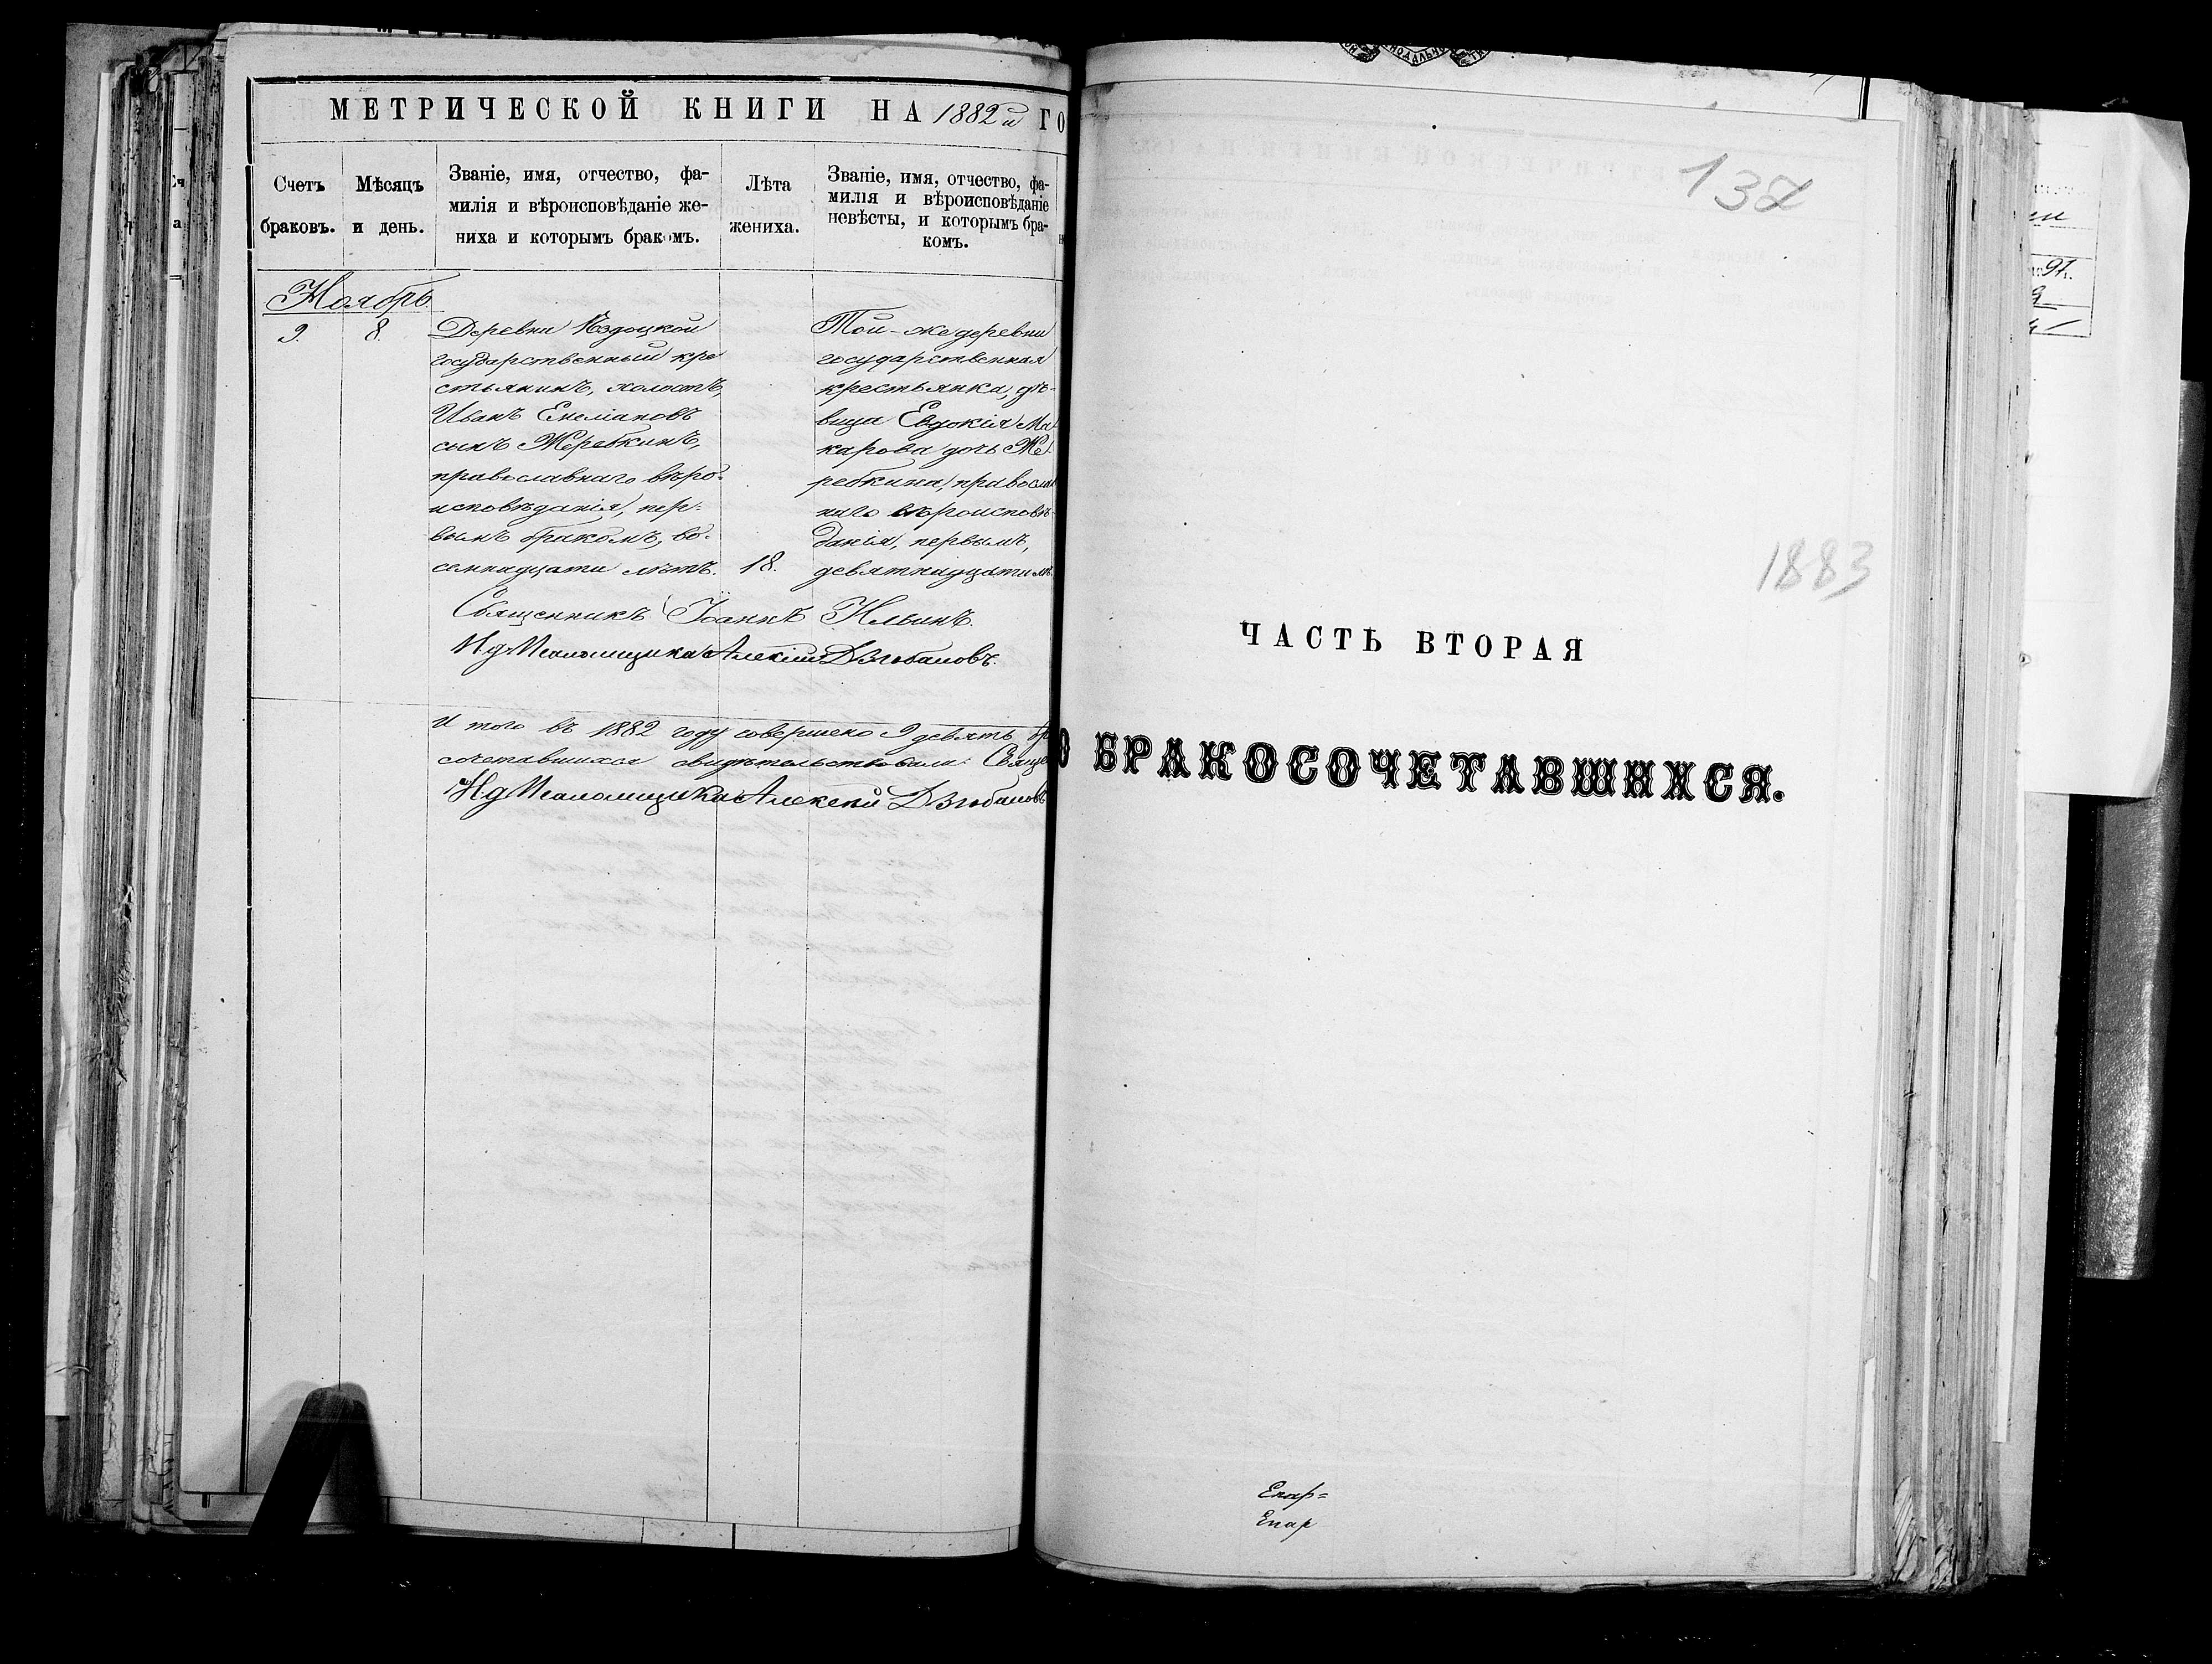 МЕТРИЧЕСКОЙ КНИГИ НА 1882й ГО
Счетъ браковъ.
Мѣсяцъ и день.
Званіе, имя, отчество, фа-
милія и вѣроисповѣданіе же-
ниха и которымъ бракомъ.
Лѣта
жениха.
Званіе, имя, отчество, фа-
милія и вѣроисповѣданіе
невѣсты, и которымъ бра-
комъ.
Ноябрь
9. 8.
Деревни Ѣздоцкой
государственный кре
стьянинъ, холостъ,
Иванъ Емеліановъ
сынъ Жеребкинъ,
православнаго вѣро-
исповѣданія, пер-
вымъ бракомъ, во-
семнадцати лѣтъ. 18.
Той-же деревни
государственная
крестьянка, дѣ-
вица Евдокія Ма
карова дочь Же-
ребкина, правосла
наго вѣроисповѣ-
данія, первымъ,
девятнадцати лѣ
Священникъ Іоаннъ Ильинъ.
И д Псаломщика Алексій
И того въ 1882 году совершено 9 девять бр
сочетавшихся свидѣтельствовали: Свяще
И д Псаломщика Алексѣй
132
1883
ЧАСТЬ ВТОРАЯ
О БРАКОСОЧЕТАВШИХСЯ.
Епар=
Епар